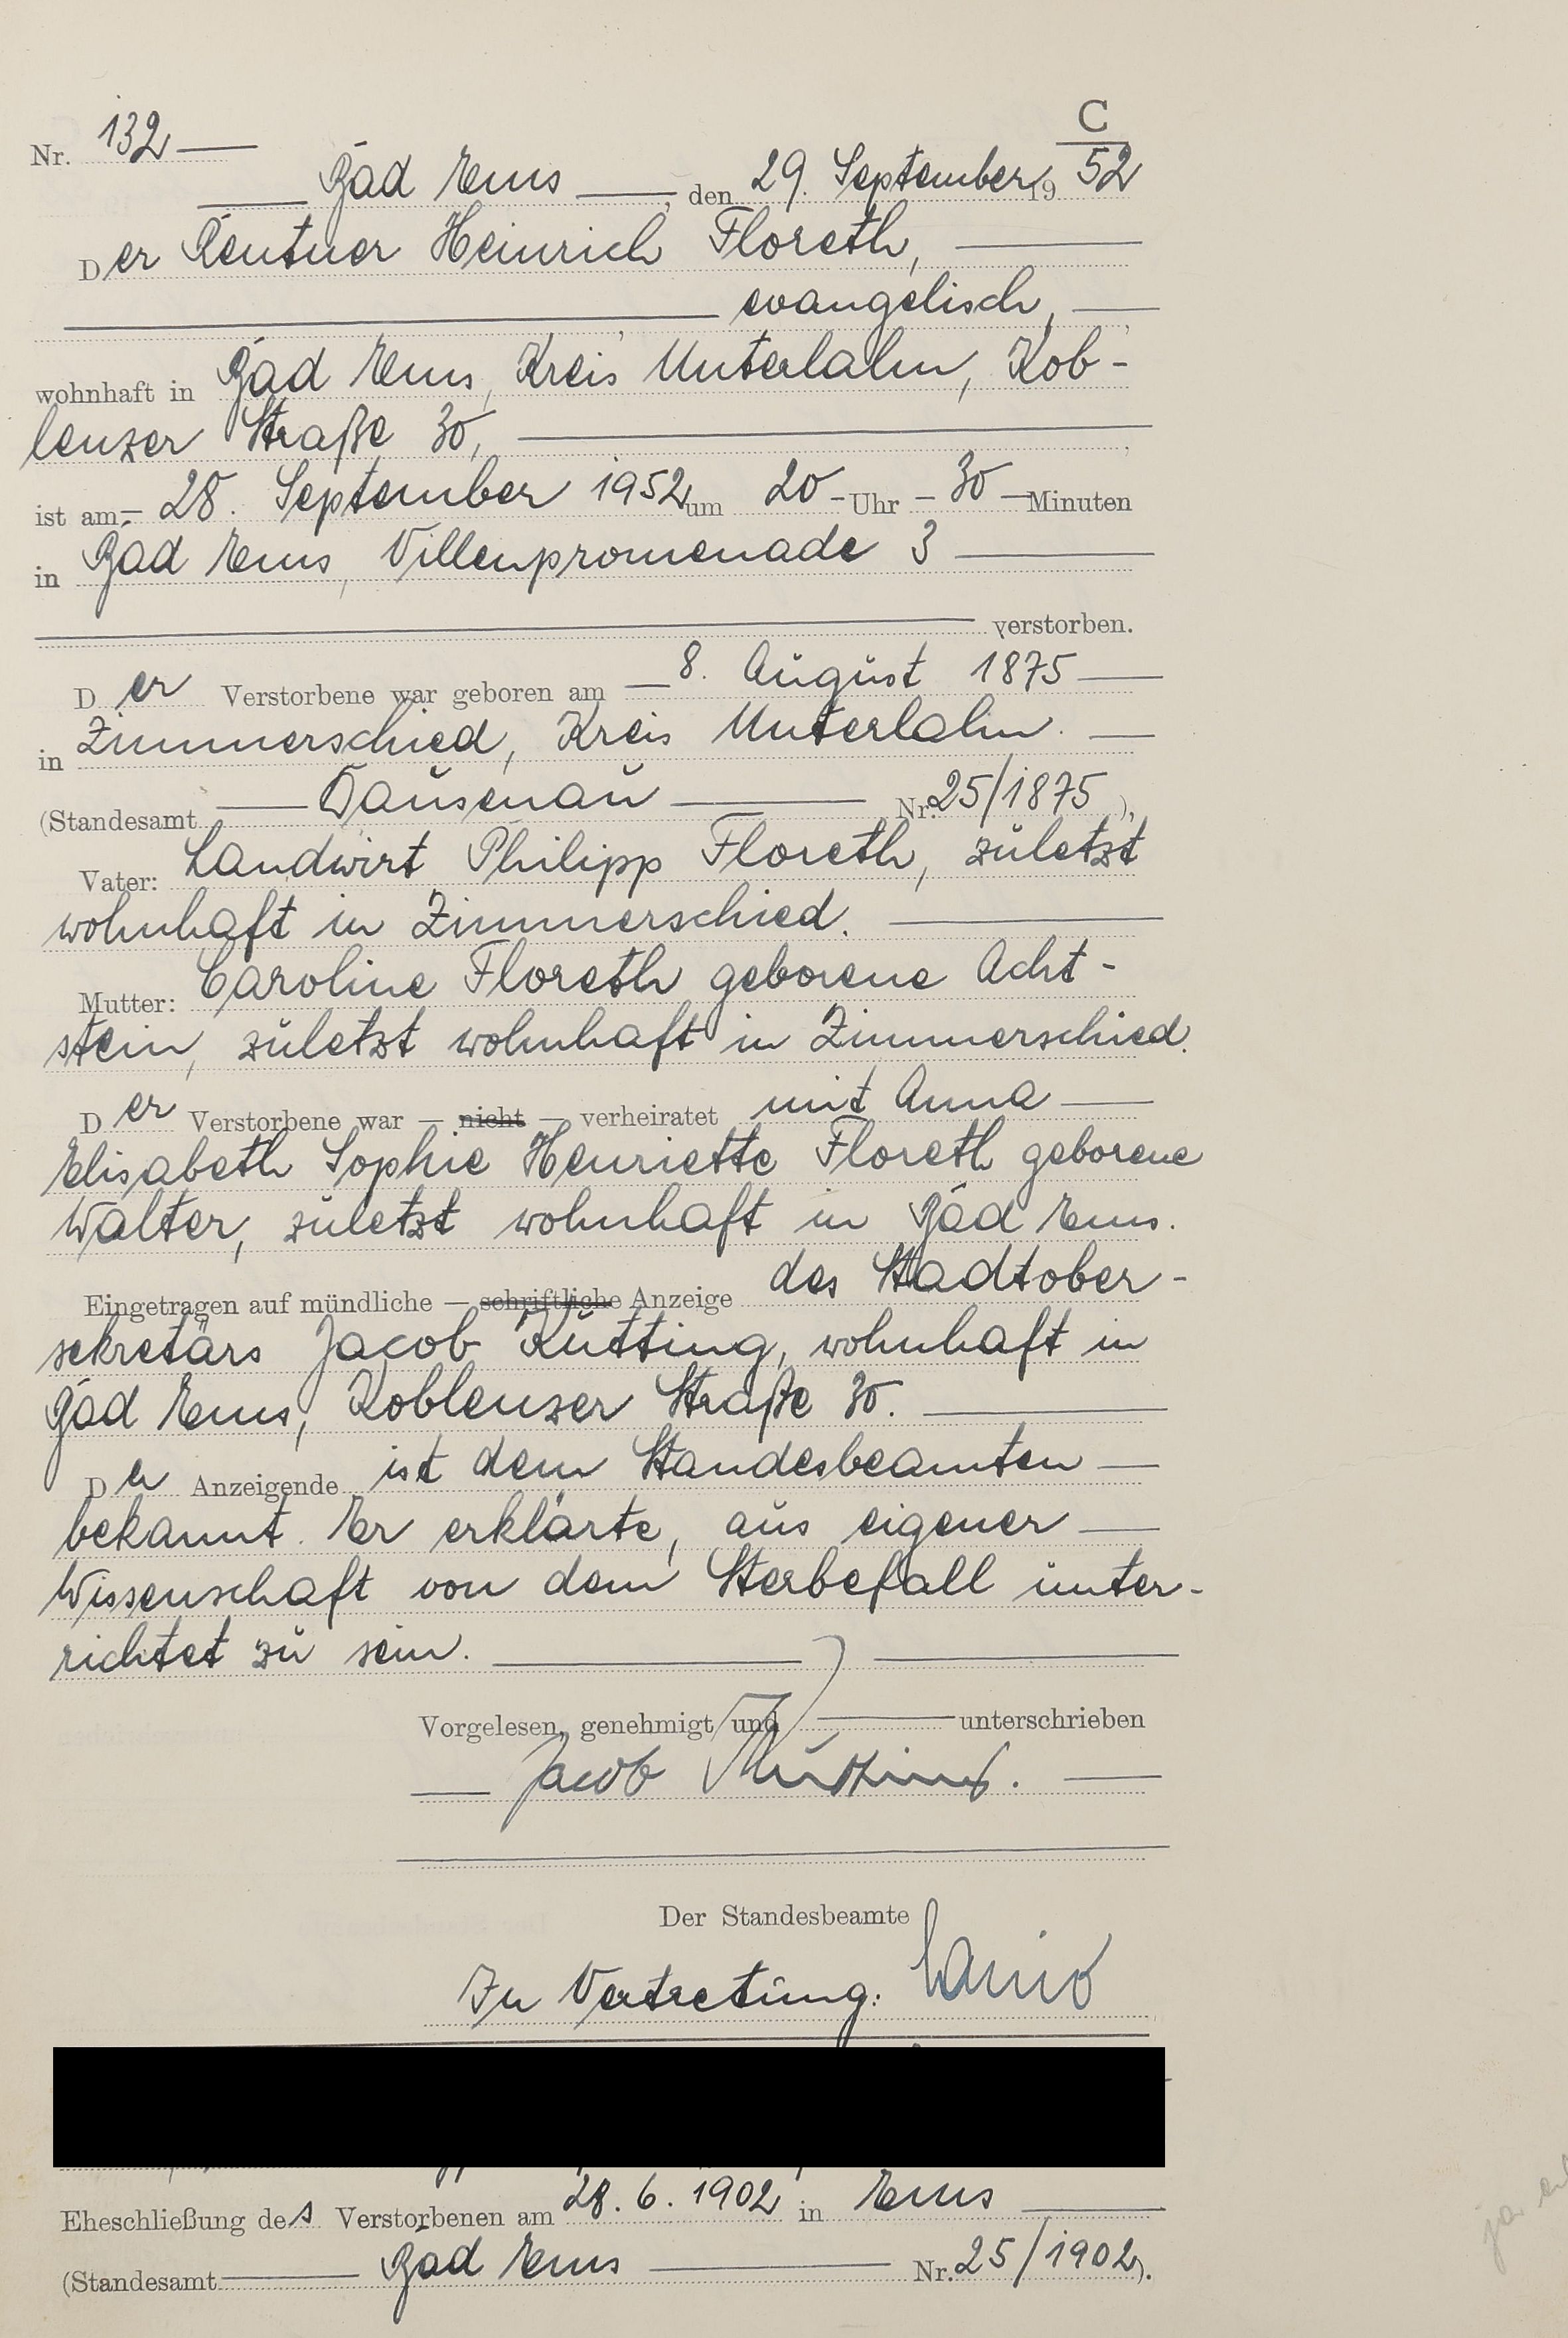 C
Nr. 132
Bad Ems, den 29. September 1952
Der Rentner Heinrich Floreth,
evangelisch,
wohnhaft in Bad Ems, Kreis Unterlahn, Kob-
lenzer Straße 30,
ist am 28. September 1952 um 20 Uhr 30 Minuten
in Bad Ems, Villenpromenade 3
verstorben.
Der Verstorbene war geboren am 8. August 1875
in Zimmerschied, Kreis Unterlahn.
(Standesamt Dausenau Nr. 25/1875),
Vater: Landwirt Philipp Floreth, zuletzt
wohnhaft in Zimmerschied.
Mutter: Caroline Floreth geborene Acht-
stein, zuletzt wohnhaft in Zimmerschied.
Der Verstorbene war — nicht — verheiratet mit Anna
Elisabeth Sophie Henriette Floreth geborene
Walter, zuletzt wohnhaft in Bad Ems.
Eingetragen auf mündliche — schriftliche Anzeige des Stadtober-
sekretärs Jacob Rütting, wohnhaft in
Bad Ems, Koblenzer Straße 30.
Der Anzeigende ist dem Standesbeamten
bekannt. Er erklärte, aus eigener
Wissenschaft von dem Sterbefall unter-
richtet zu sein.
Vorgelesen, genehmigt und unterschrieben
Jacob
Der Standesbeamte
In Vertretung:
Eheschließung des Verstorbenen am 28. 6. 1902 in Ems
(Standesamt Bad Ems Nr. 25/1902).